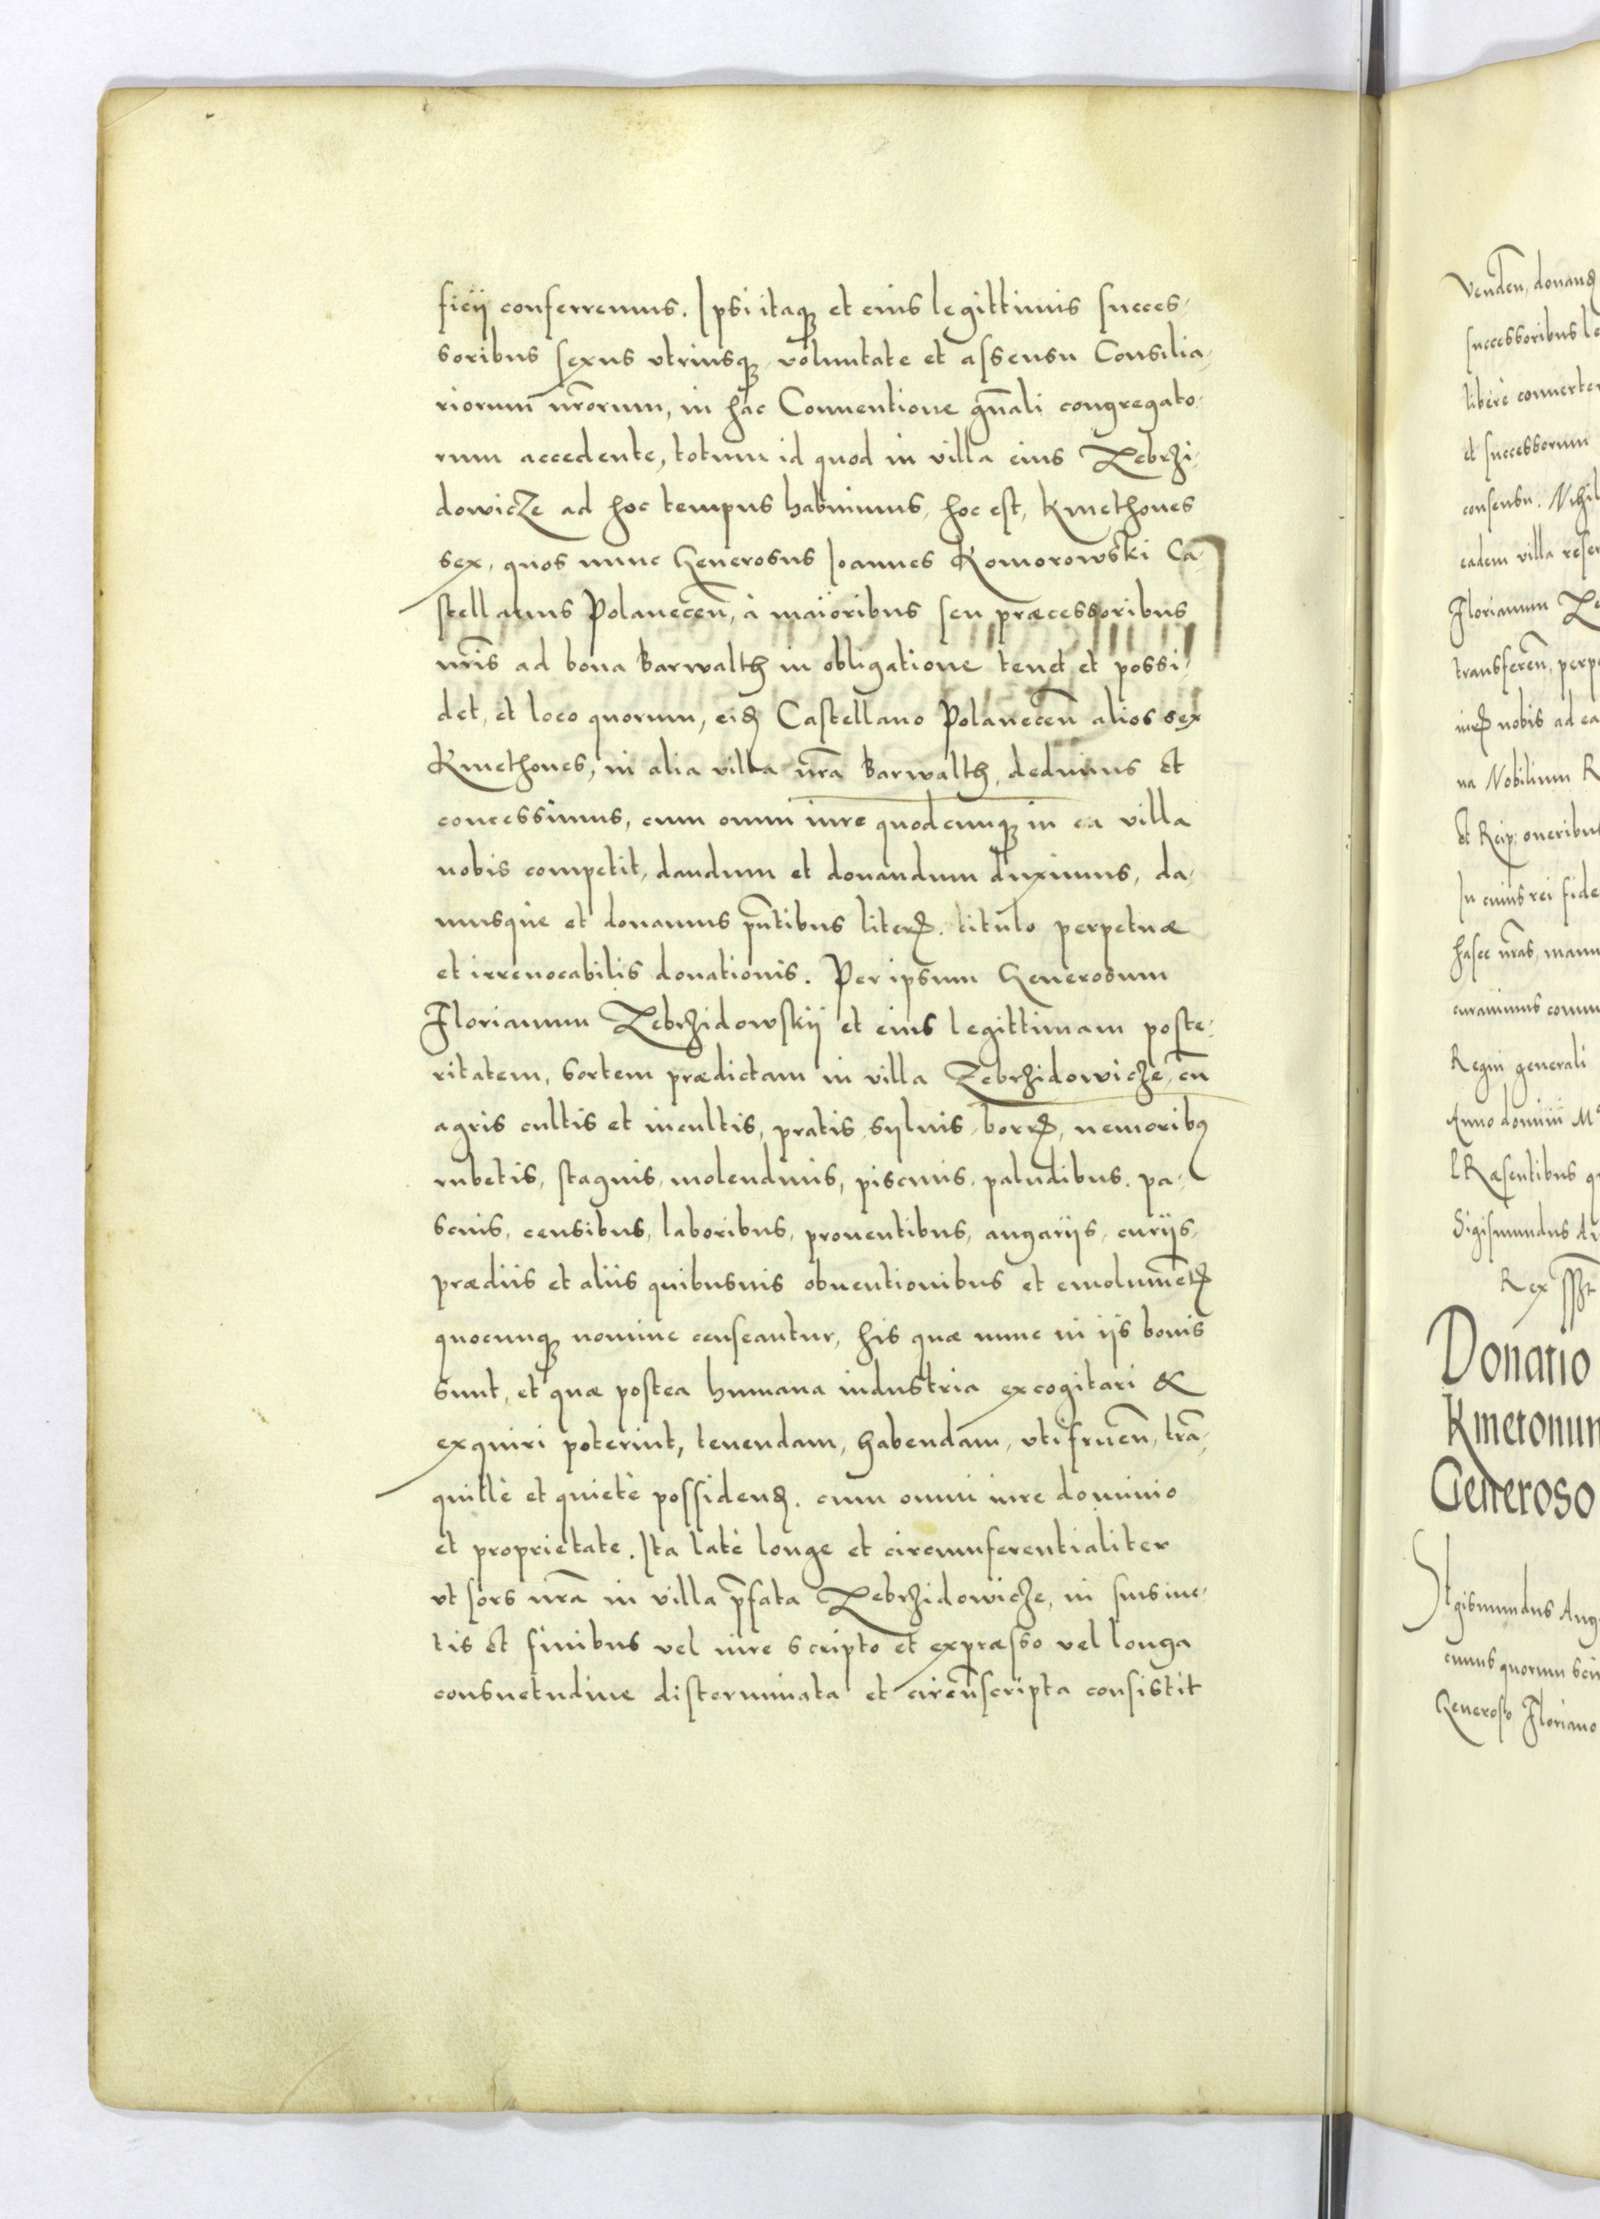 ficij conferremus. Ipsi itaqꝫ et eius legittimis succes-
soribus sexus vtriusqꝫ, voluntate et assensu Consilia-
riorum nrõrum, in hac Conuentione gñali congregato-
rum accedente, totum id quod in villa eius Zebrzi-
dowicze ad hoc tempus habuimus, hoc est, Kmethones
sex, quos nunc Generosus Ioannes Komorowski Ca-
stellanus Polanecen̄, à maioribus seu præcessoribus
nrĩs ad bona Barwalth in obligatione tenet et possi-
det, et loco quorum, eiđ Castellano Polanecen̄ alios sex
Kmethones, in alia villa nrã Barwalth, dedimus et
concessimus, cum omni iure quodcunqꝫ in ea villa
nobis competit, dandum et donandum duximus, da-
musque et donamus pñtibus literꝭ. titulo perpetuæ
et irreuocabilis donationis. Per ipsum Generosum
Florianum Zebrzidowskij et eius legittimam poste-
ritatem, sortem prædictam in villa Zebrzidowicze, cũ
agris cultis et incultis, pratis, syluis, borrꝭ, nemoribꝰ
rubetis, stagnis, molendinis, piscinis, paludibus, pa-
scuis, censibus, laboribus, prouentibus, angarijs, curijs,
prædiis et aliis quibusuis obuentionibus et emolumẽtꝭ
quocunqꝫ nomine censeantur, his quæ nunc in iis bonis
sunt, et quæ postea humana industria excogitari &
exquiri poterint, tenendam, habendam, vtifruen̄, trã-
quillè et quietè possidenđ. cum omni iure dominio
et proprietate. Ita latè longe et circumferentialiter
vt sors nrã in villa p̃fata Zebrzidowicze, in suis me-
tis et finibus vel iure scripto et expræsso vel longa
consuetudine disterminata et circũscripta consistit
Venden̄, donanđ
successoribus
liberè
et successorum
consensu. Nihil
eadem villa
Florianum
transferen̄,
nobis ad
na Nobilium
et Reip: oneribus
In cuius rei
hasce nrãs,
curauimus
Regni generali
Anno domini
Præsentibus
Sigismundus
Rex
Donatio
Kmetonum
Generoso
Sigismundus
quorum
Generoso Floriano